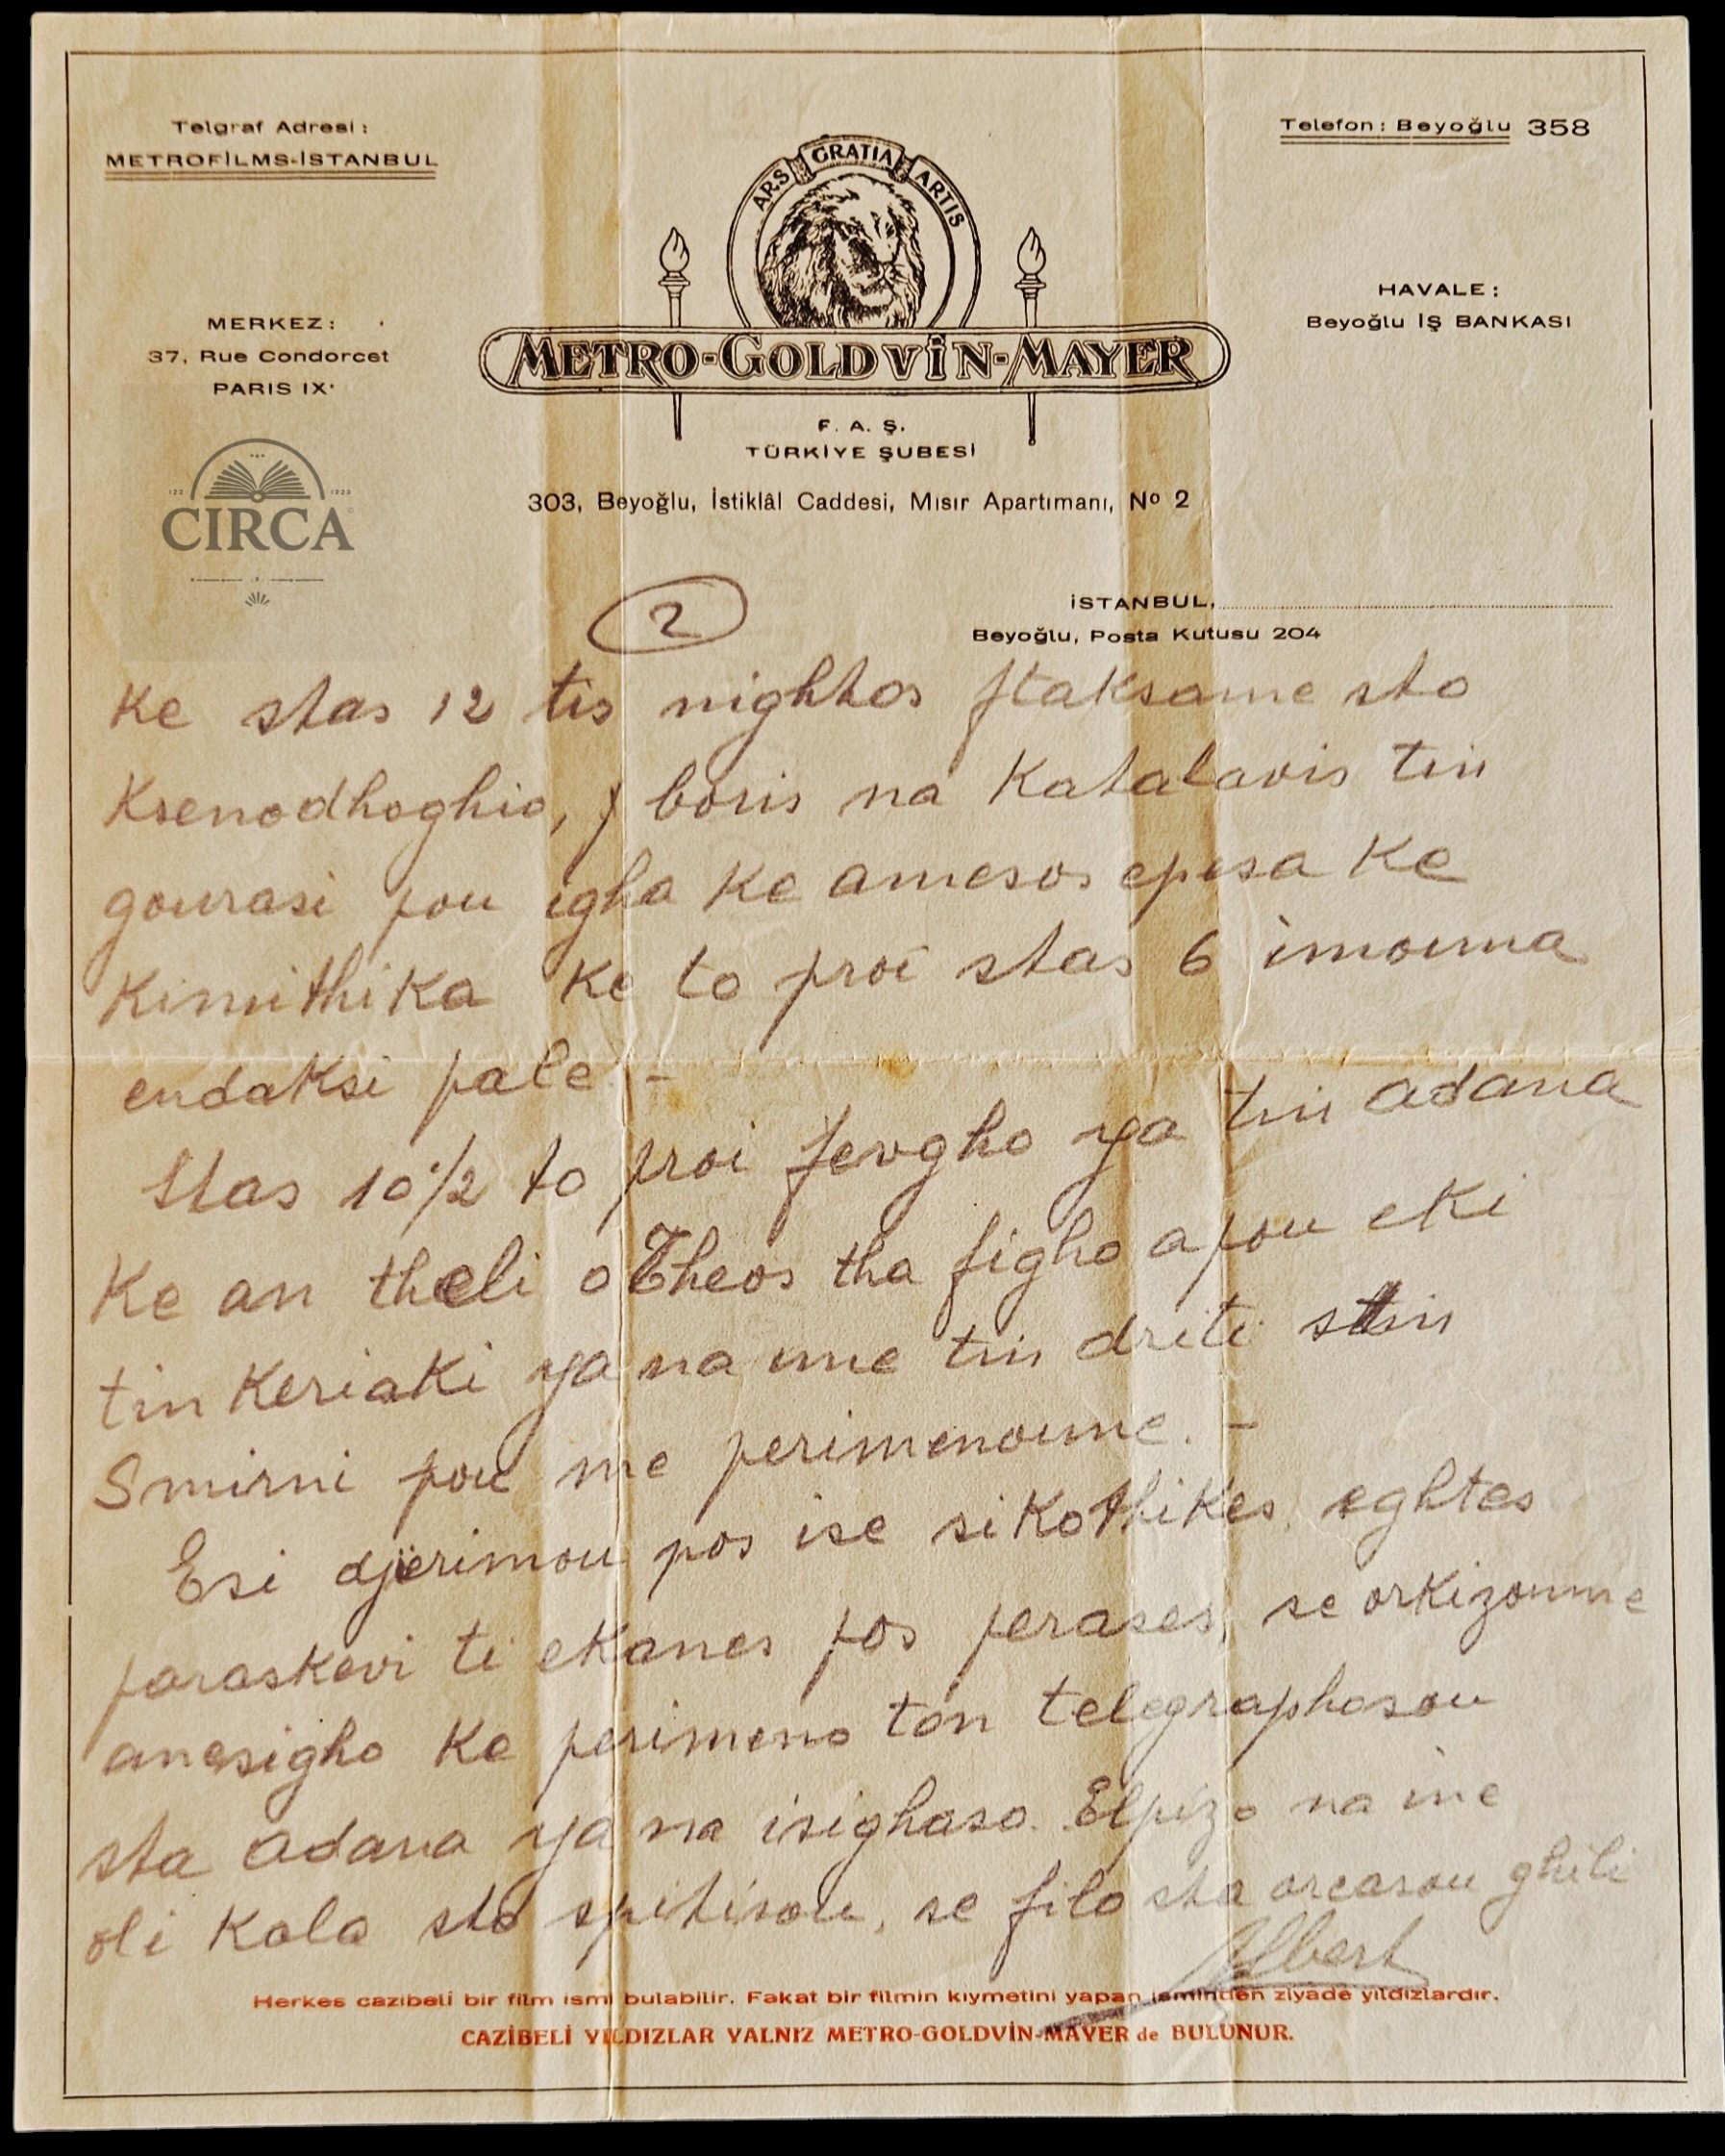 Telgraf Adresi:
METROFİLMS-İSTANBUL
Telefon: Beyoğlu 358
ARS GRATIA ARTIS
MERKEZ:
37, Rue Condorcet
PARIS IX.
HAVALE:
Beyoğlu İŞ BANKASI
METRO-GOLDVİN-MAYER
F. A. Ş.
TÜRKİYE ŞUBESİ
303, Beyoğlu, İstiklâl Caddesi, Mısır Apartımanı, No 2
CIRCA
2
İSTANBUL,
Beyoğlu, Posta Kutusu 204
ke stas 12 tis nightos ftaksame sto
Ksenodhoghio, boris na Katalavis tin
gourasi pou igha ke amesos epesa ke
Kimithika ke to proi stas 6 imouna
endaksi pale. -
Stas 10 1/2 to proi fevgho ya tin adana
Ke an theli o Theos tha figho apou eki
tin Keriaki ya na ime tin driti stin
Smirni pou me perimenoume. -
Esi djierimou pos ise sikothikes, eghtes
paraskevi ti ekanes pos perases, se orkizoume
anesigho ke perimeno ton telegraphosou
sta adana ya na isighaso. Elpizo na ine
oli kala sto spitisou, se filo sta oreasou ghili
Albert
Herkes cazibeli bir film ismi bulabilir. Fakat bir filmin kıymetini yapan isminden ziyade yıldızlardır.
CAZİBELİ YILDIZLAR YALNIZ METRO-GOLDVİN-MAYER de BULUNUR.